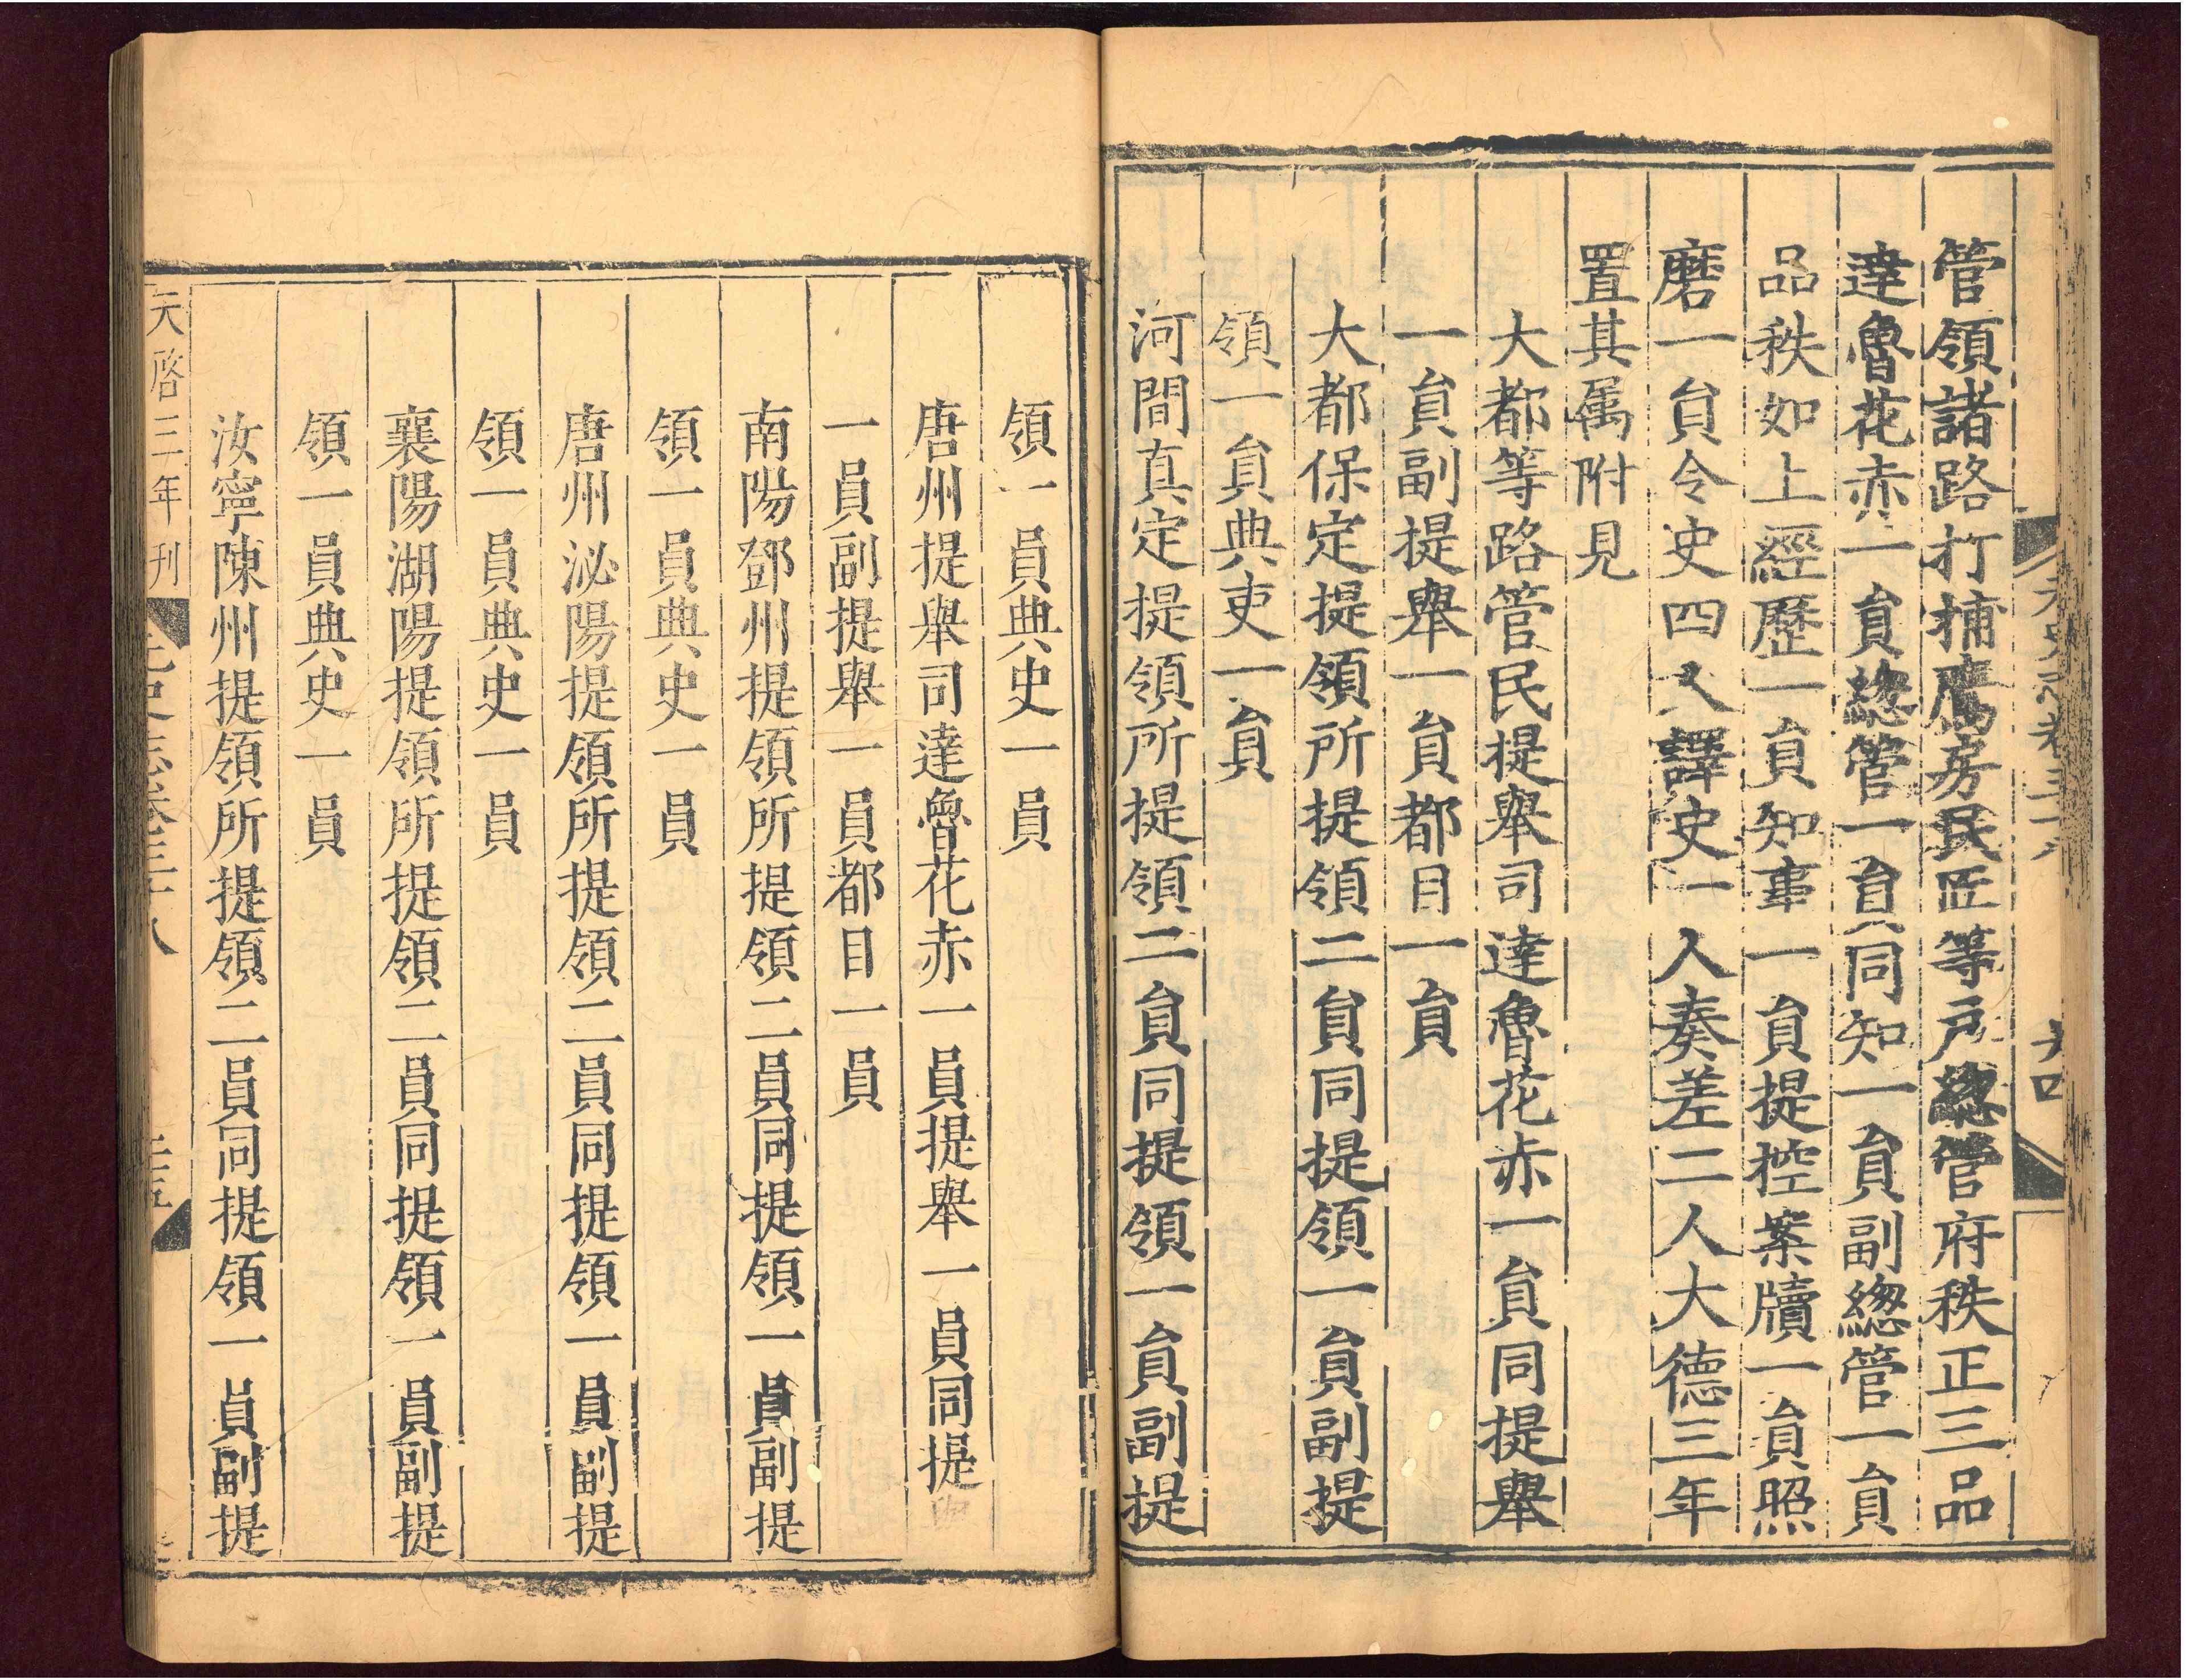 元史志卷三十八
九四
管領諸路打捕鷹房民匠等戶緫管府秩正三品
達魯花赤一貟緫管一貟同知一貟副緫管一貟
品秩如上經歷一貟知事一貟提控案牘一貟照
磨一貟令史四人譯史一人奏差二人大德三年
置其属附見
大都等路管民提舉司達魯花赤一貟同提舉
一貟副提舉一貟都目一貟
大都保定提領所提領二貟同提領一貟副提
領一貟典吏一貟
河間真定提領所提領二貟同提領一貟副提
領一員典史一員
唐州提舉司達魯花赤一員提舉一員同提舉
一員副提舉一員都目一員
南陽鄧州提領所提領二員同提領一員副提
領一員典史一員
唐州泌陽提領所提領二員同提領一員副提
領一員典史一員
襄陽湖陽提領所提領二員同提領一員副提
領一員典史一員
汝寧陳州提領所提領二員同提領一員副提
天啓三年刊
元史志卷三十八